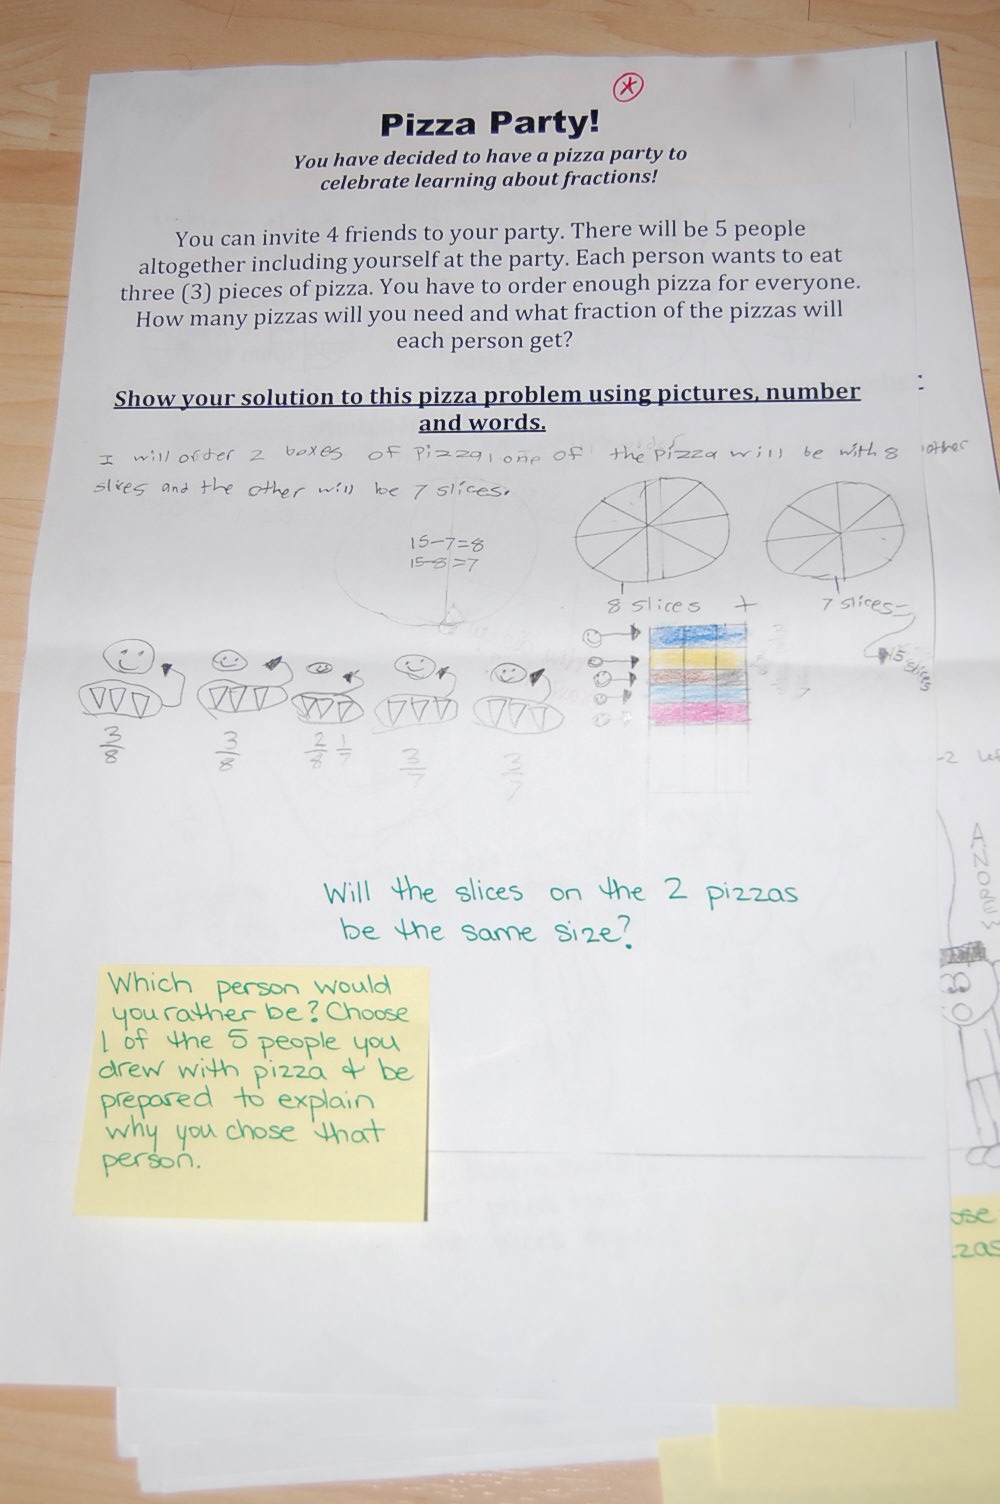 Pizza Party!
You have decided to have a pizza party to
celebrate learning about fractions!
You can invite 4 friends to your party. There will be 5 people
altogether including yourself at the party. Each person wants to eat
three (3) pieces of pizza. You have to order enough pizza for everyone.
How many pizzas will you need and what fraction of the pizzas will
each person get?
Show your solution to this pizza problem using pictures, number
and words.
I will order 2 boxes of pizza, one of the pizza will be with 8
slices and the other will be 7 slices.
other
15-7=8
15-8=7
8 slices + 7 slices=
15 slices
3/8 3/8 2/8 1/7 3/7 3/7
-2
ANDREW
Will the slices on the 2 pizzas
be the same size?
Which person would
you rather be? Choose
1 of the 5 people you
drew with pizza & be
prepared to explain
why you chose that
person.